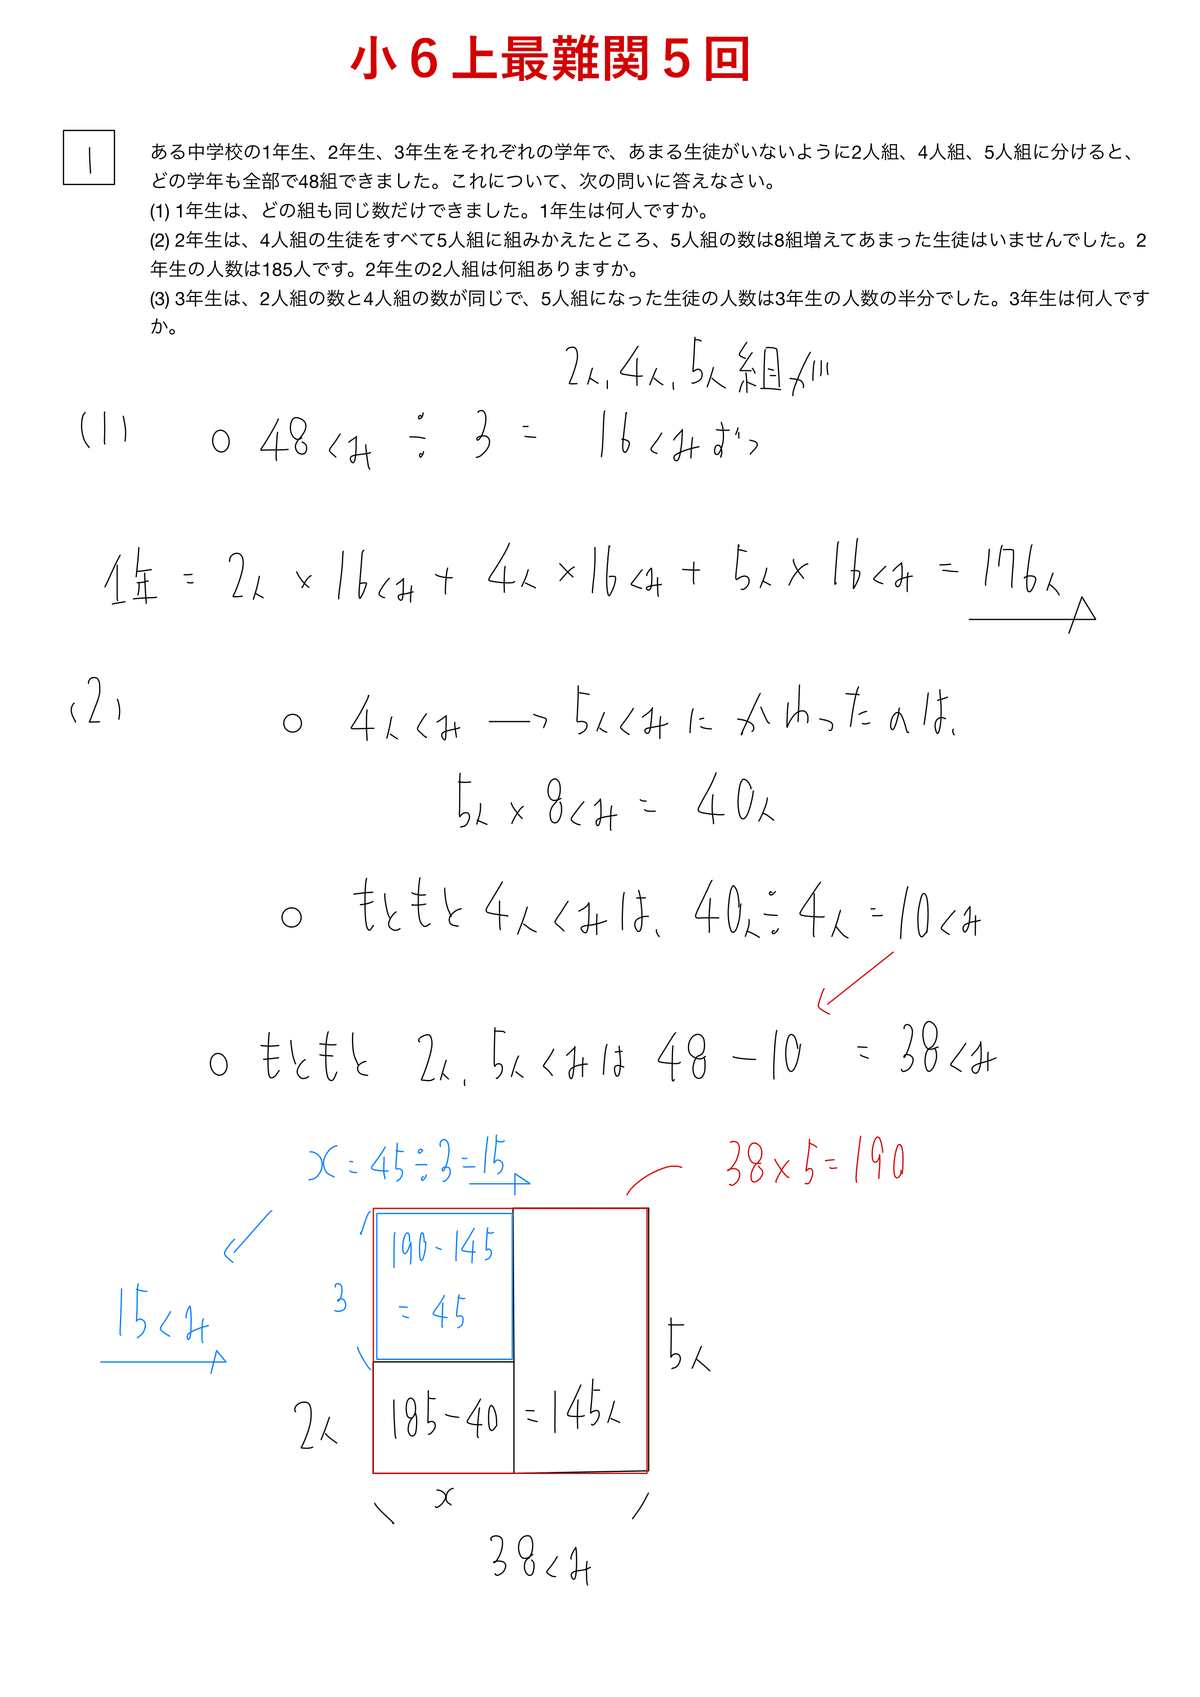 小６上最難関５回
1
ある中学校の1年生、2年生、3年生をそれぞれの学年で、あまる生徒がいないように2人組、4人組、5人組に分けると、
どの学年も全部で48組できました。これについて、次の問いに答えなさい。
(1) 1年生は、どの組も同じ数だけできました。1年生は何人ですか。
(2) 2年生は、4人組の生徒をすべて5人組に組みかえたところ、5人組の数は8組増えてあまった生徒はいませんでした。2
年生の人数は185人です。2年生の2人組は何組ありますか。
(3) 3年生は、2人組の数と4人組の数が同じで、5人組になった生徒の人数は3年生の人数の半分でした。3年生は何人です
か。
2人、4人、5人組が
(1) ○ 48くみ ÷ 3 = 16くみずつ
1年 = 2人 × 16くみ + 4人 × 16くみ + 5人 × 16くみ = 176人
(2) ○ 4人くみ → 5人くみにかわったのは、
5人 × 8くみ = 40人
○ もともと4人くみは、40人÷4人 = 10くみ
○ もともと 2人、5人くみは 48 - 10 = 38くみ
x = 45÷3=15
38×5=190
190-145
= 45
3
15くみ
5人
2人
185-40 = 145人
x
38くみ